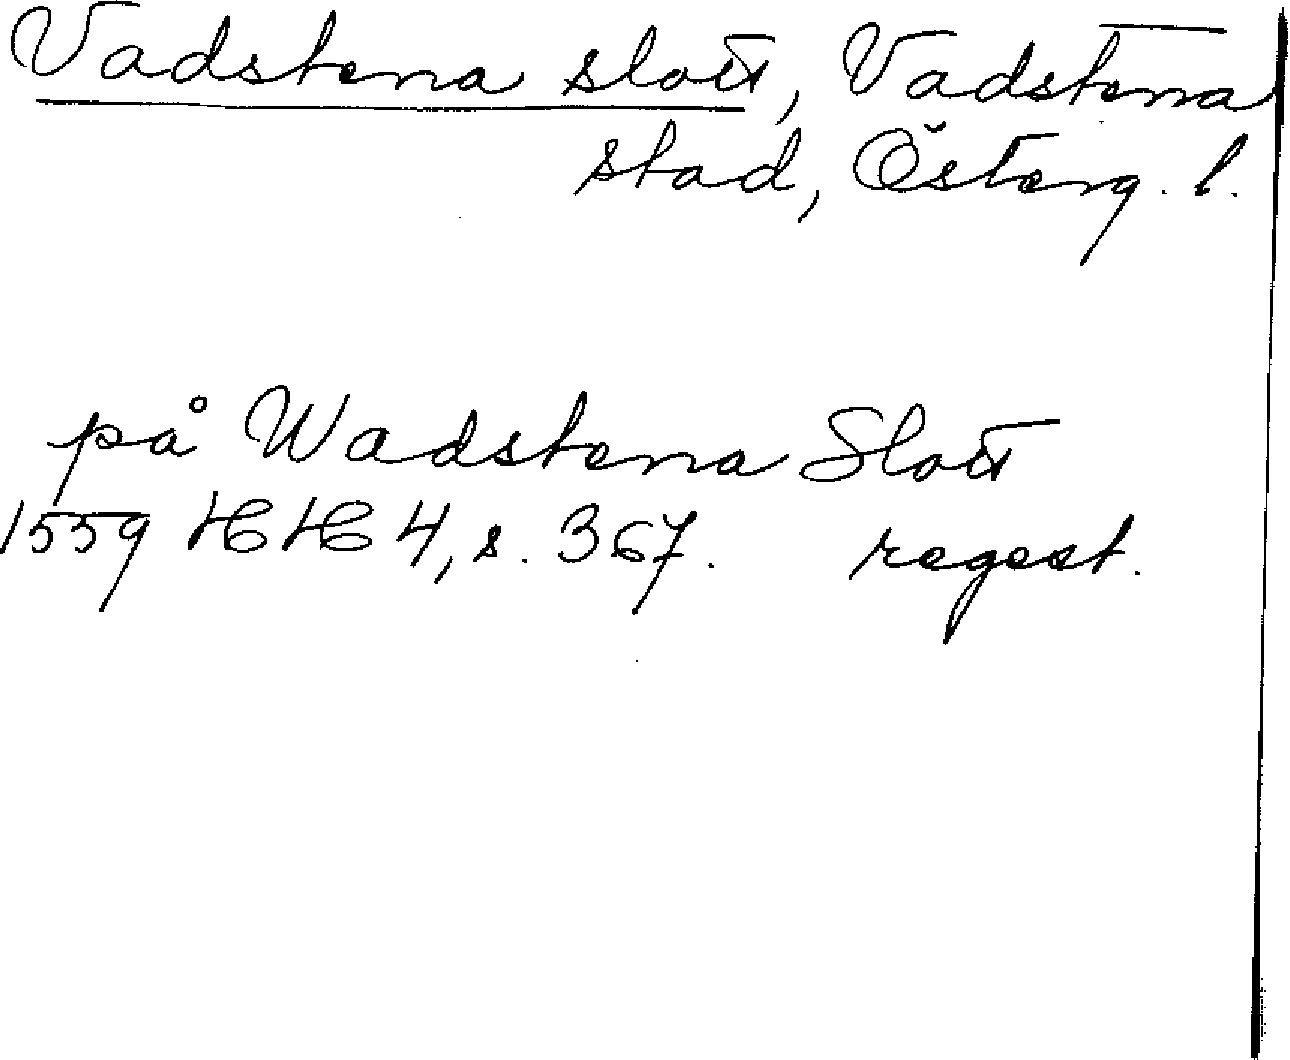 Vadstena slott, Vadstena
stad, Österg. l.
på Wadstena Slott
1559 HH 4, s. 367. regest.